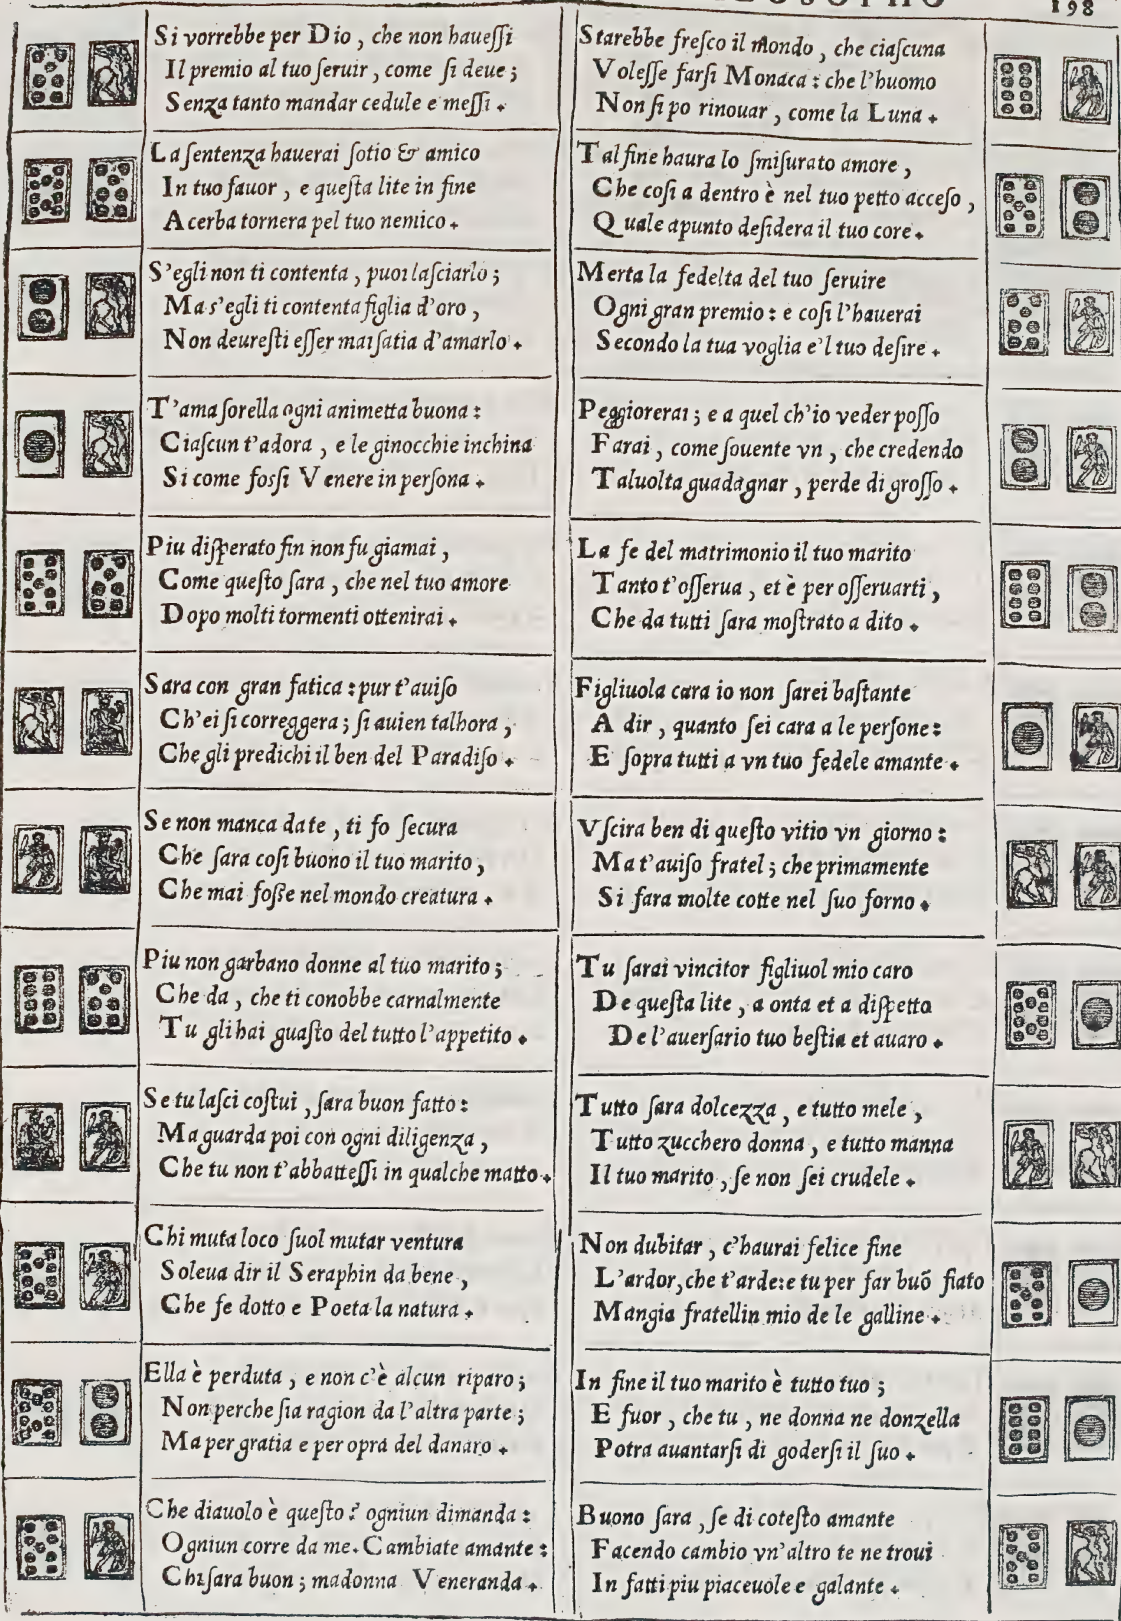 198
Si vorrebbe per Dio, che non haueſſi
Il premio al tuo ſeruir, come ſi deue;
Senza tanto mandar cedule e meſſi.
La ſentenza hauerai ſotio & amico
In tuo fauor, e queſta lite in fine
Acerba tornera pel tuo nemico.
S'egli non ti contenta, puoi laſciarlo;
Ma s'egli ti contenta figlia d'oro,
Non deureſti eſſer mai ſatia d'amarlo.
T'ama ſorella ogni animetta buona:
Ciaſcun t'adora, e le ginocchie inchina
Si come foſſi Venere in perſona.
Piu diſperato fin non fu giamai,
Come queſto ſara, che nel tuo amore
Dopo molti tormenti ottenirai.
Sara con gran fatica: pur t'auiſo
Ch'ei ſi correggera; ſi auien talhora,
Che gli predichi il ben del Paradiſo.
Se non manca da te, ti fo ſecura
Che ſara coſi buono il tuo marito,
Che mai foſſe nel mondo creatura.
Piu non garbano donne al tuo marito;
Che da, che ti conobbe carnalmente
Tu gli hai guaſto del tutto l'appetito.
Se tu laſci coſtui, ſara buon fatto:
Ma guarda poi con ogni diligenza,
Che tu non t'abbatteſſi in qualche matto.
Chi muta loco ſuol mutar ventura
Soleua dir il Seraphin da bene,
Che fe dotto e Poeta la natura.
Ella è perduta, e non c'è alcun riparo;
Non perche ſia ragion da l'altra parte;
Ma per gratia e per opra del danaro.
Che diauolo è queſto? ogniun dimanda:
Ogniun corre da me. Cambiate amante:
Chi ſara buon; madonna Veneranda.
Starebbe freſco il mondo, che ciaſcuna
Voleſſe farſi Monaca: che l'huomo
Non ſi po rinouar, come la Luna.
Tal fine haura lo ſmiſurato amore,
Che coſi a dentro è nel tuo petto acceſo,
Quale apunto deſidera il tuo core.
Merta la fedelta del tuo ſeruire
Ogni gran premio: e coſi l'hauerai
Secondo la tua voglia e'l tuo deſire.
Peggiorerai; e a quel ch'io veder poſſo
Farai, come ſouente vn, che credendo
Taluolta guadagnar, perde di groſſo.
La fe del matrimonio il tuo marito
Tanto t'oſſerua, et è per oſſeruarti,
Che da tutti ſara moſtrato a dito.
Figliuola cara io non ſarei baſtante
A dir, quanto ſei cara a le perſone:
E ſopra tutti a vn tuo fedele amante.
Vſcira ben di queſto vitio vn giorno:
Ma t'auiſo fratel; che primamente
Si fara molte cotte nel ſuo forno.
Tu ſarai vincitor figliuol mio caro
De queſta lite, a onta et a diſpetto
De l'auerſario tuo beſtia et auaro.
Tutto ſara dolcezza, e tutto mele,
Tutto zucchero donna, e tutto manna
Il tuo marito, ſe non ſei crudele.
Non dubitar, c'haurai felice fine
L'ardor, che t'arde: e tu per far buõ fiato
Mangia fratellin mio de le galline.
In fine il tuo marito è tutto tuo;
E fuor, che tu, ne donna ne donzella
Potra auantarſi di goderſi il ſuo.
Buono ſara, ſe di coteſto amante
Facendo cambio vn'altro te ne troui
In fatti piu piaceuole e galante.